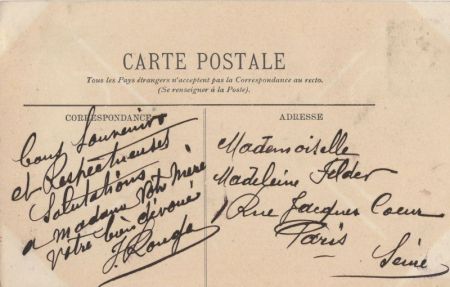 CARTE POSTALE
Tous les Pays étrangers n'acceptent pas la Correspondance au recto.
(Se renseigner à la Poste).
CORRESPONDANCE
Souvenirs
et Respectueuses
Salutations
a Madame Mère
Votre bien dévoué
ADRESSE
Mademoiselle
Madeleine Felder
1 Rue Jacques Coeur
Paris
Seine